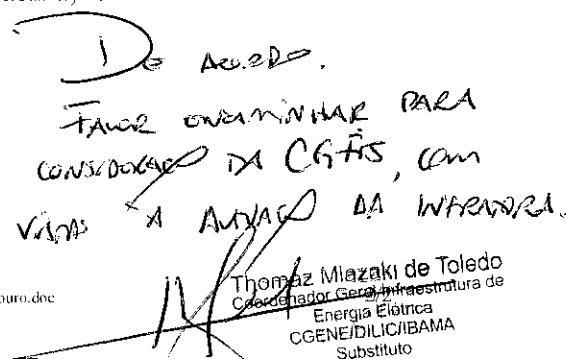 De acordo.
Favor encaminhar para
consideração da CGFIS, com
vistas à autuação da infratora.
Thomaz Miazaki de Toledo
Coordenador Geral Infraestrutura de
Energia Elétrica
CGENE/DILIC/IBAMA
Substituto
ouro.doc
2/2